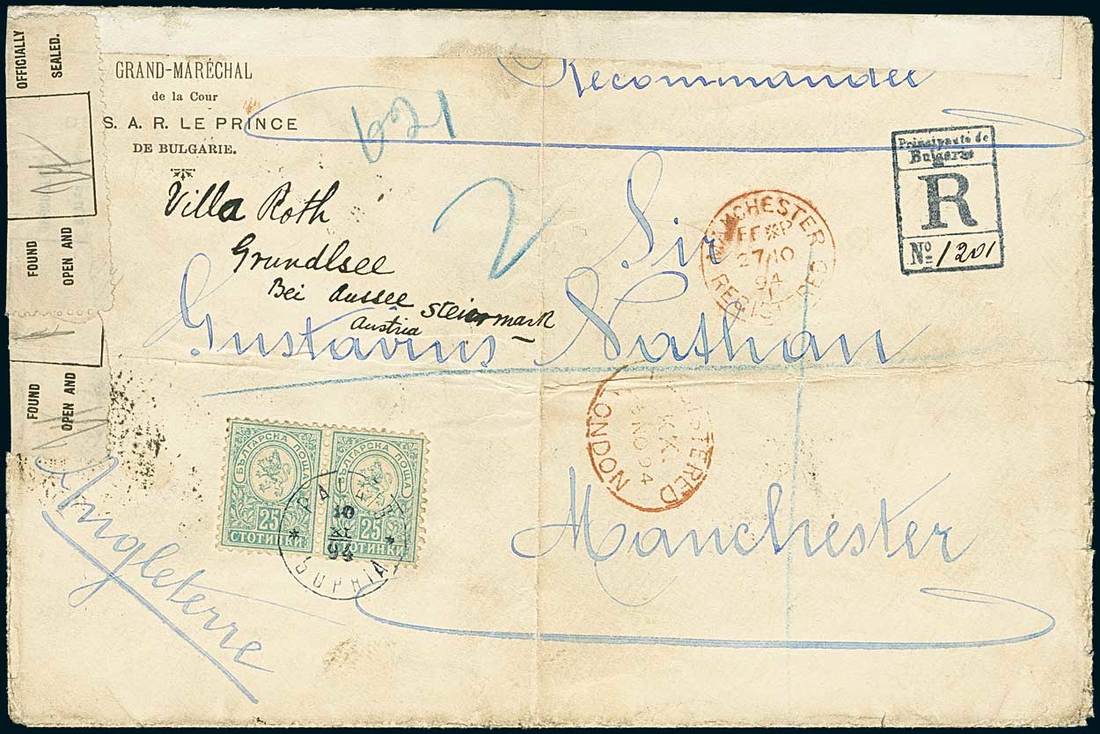 OFFICIALLY
SEALED.
FOUND
OPEN AND
FOUND
OPEN AND
GRAND-MARÉCHAL
de la Cour
S. A. R. LE PRINCE
DE BULGARIE.
Recommandée
Villa Roth
Grundlsee
Bei Aussee
Steiermark
Austria
2
Principauté de
Bulgarie
R
No 1201
MANCHESTER
27 NO
94
Sir
Gustavius Nathan
REGISTERED
NO 94
LONDON
БЪЛГАРСКА ПОЩА
25
СТОТИНКИ
БЪЛГАРСКА ПОЩА
25
СТОТИНКИ
10
XI
94
SOPHIA
Manchester
Angleterre